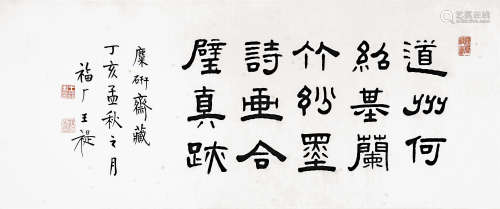 道州何
紹基蘭
竹紗墨
詩画合
璧真跡
麋研齋藏
丁亥孟秋之月
福厂王禔